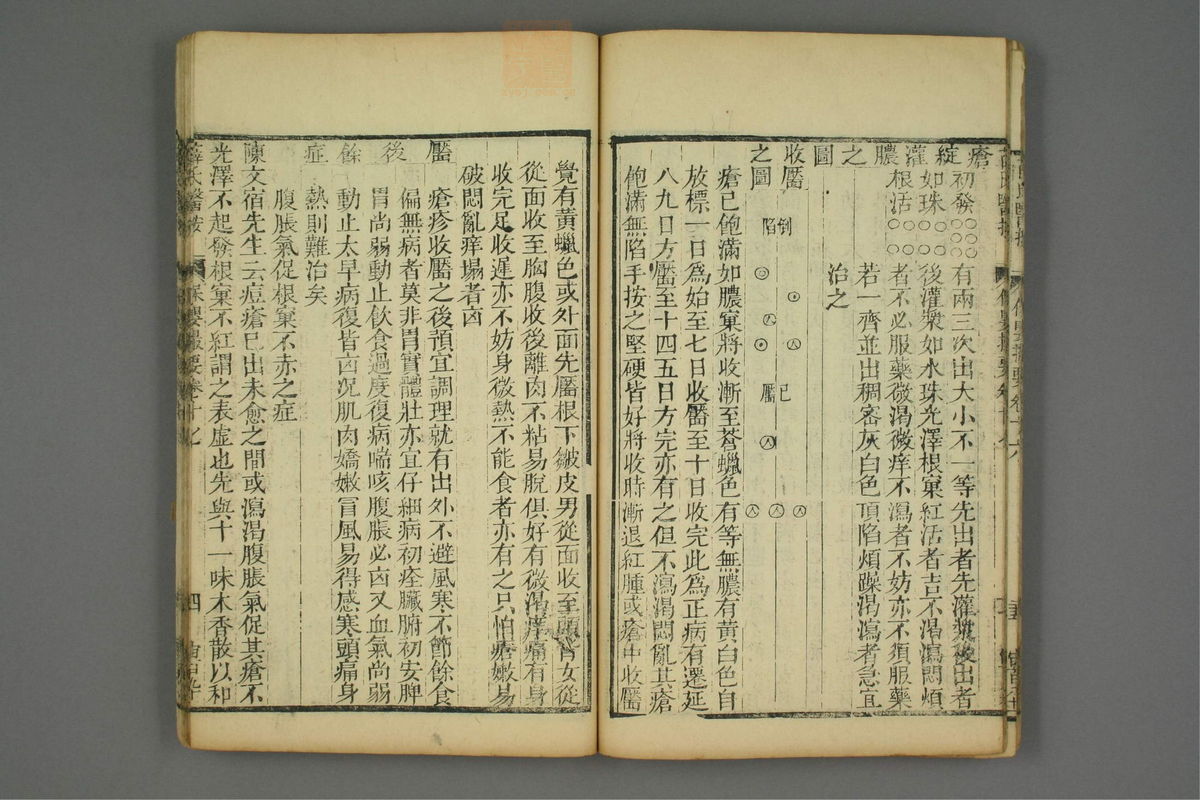 瘡綻灌膿之圖
初發○○○有兩三次出大小不一等先出者先灌漿後出者
如珠○○○後灌漿如水珠光澤根窠紅活者吉不渴瀉悶煩
根活○○者不必服藥微渴微痒不瀉者不妨亦不須服藥
若一齊並出稠密灰白色頂陷煩躁渴瀉者急宜
治之
收靨之圖
倒陷
已靨
瘡已飽滿如膿窠將收漸至蒼蠟色有等無膿有黃白色自
放標一日爲始至七日收靨至十日收完此爲正病有遷延
八九日方靨至十四五日方完亦有之但不瀉渴悶亂其瘡
飽滿無陷手按之堅硬皆好將收時漸退紅腫或瘡中收靨
覺有黃蠟色或外面先靨根下皺皮男從面收至頭背女從
從面收至胸腹收後離肉不粘易脫俱好有微渴痒痛有身
收完足收遲亦不妨身微熱不能食者亦有之只怕瘡嫩易
破悶亂痒塌者凶
靨後餘症
瘡疹收靨之後須宜調理就有出外不避風寒不節餘食
偏無病者莫非胃實體壯亦宜仔細病初痊臟腑初安脾
胃尚弱動止飲食過度復病喘咳腹脹必凶又血氣尚弱
動止太早病復皆凶况肌肉嬌嫩冒風易得感寒頭痛身
熱則難治矣
腹脹氣促根窠不赤之症
陳文宿先生云痘瘡已出未愈之間或瀉渴腹脹氣促其瘡不
光澤不起發根窠不紅謂之表虛也先與十一味木香散以和
薛氏醫按
保嬰撮要卷十八
四